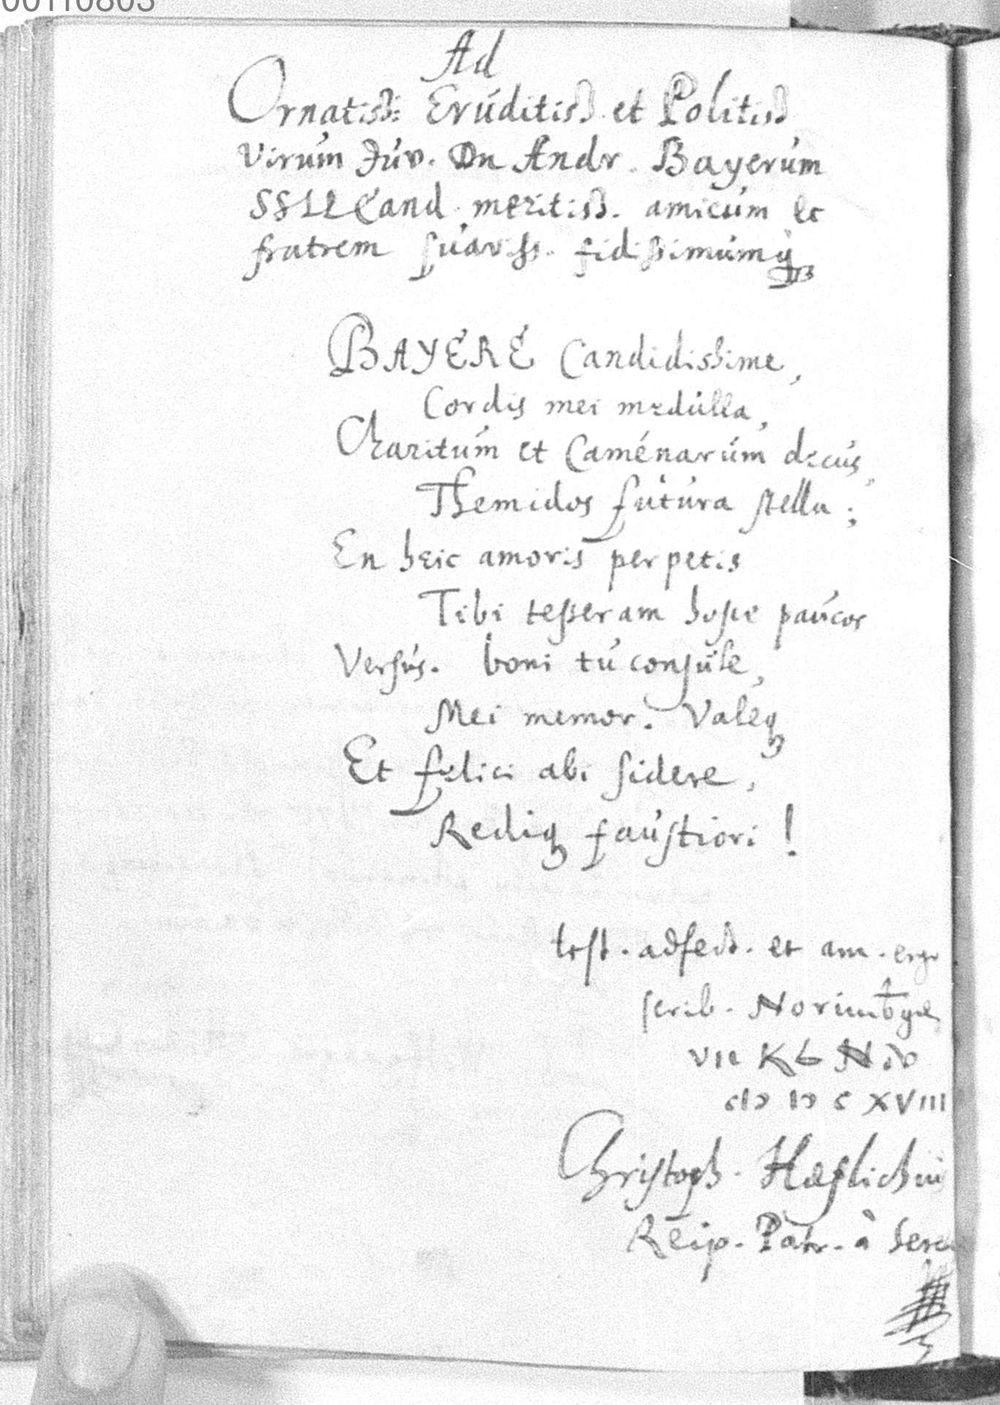 00110803
Ad
Ornatiss: Eruditiss. et Politiss
Virum Juv. Dn Andr. Bayerum
SSLL Cand. meritiss. amicum et
fratrem suaviss. fidissimumq
BAYERE Candidissime,
Cordis mei medulla,
Charitum et Camenarum decus,
Themidos futura stella;
En heic amoris perpetis
Tibi tesseram hosce paucos
Versus. boni tu consule,
Mei memor. Valeq
Et felici abi sidere,
Rediq faustiori!
test. adfect. et am. ergo
scrib. Norimbgæ
VII Kl Nov
CIↃ IↃ C XVIII
Christoph. Hæslichiu
Reip. Patr. à